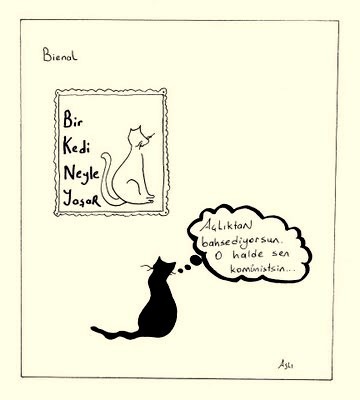 Bienal
Bir
Kedi
Neyle
Yaşar
Açlıktan
bahsediyorsun.
O halde sen
komünistsin...
Aslı